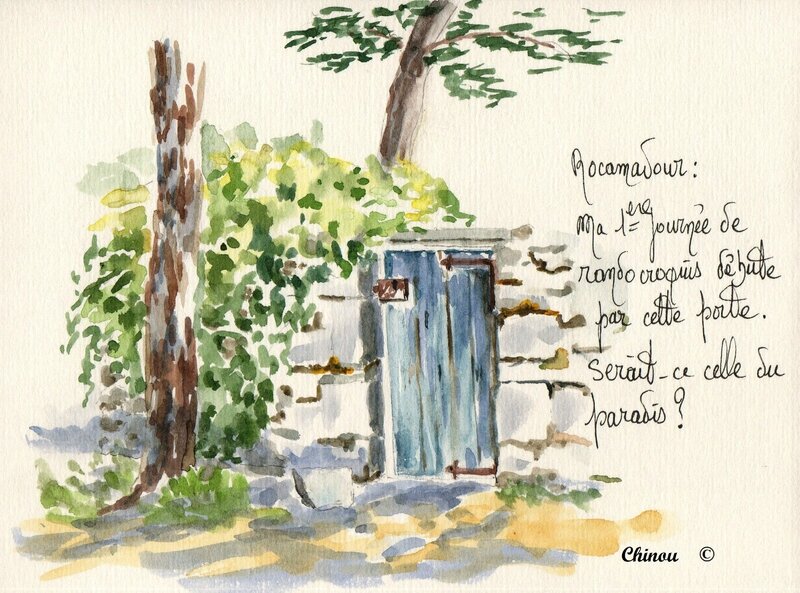 Rocamadour :
Ma 1ère journée de
rando croquis débute
par cette porte.
Serait-ce celle du
paradis ?
Chinou ©